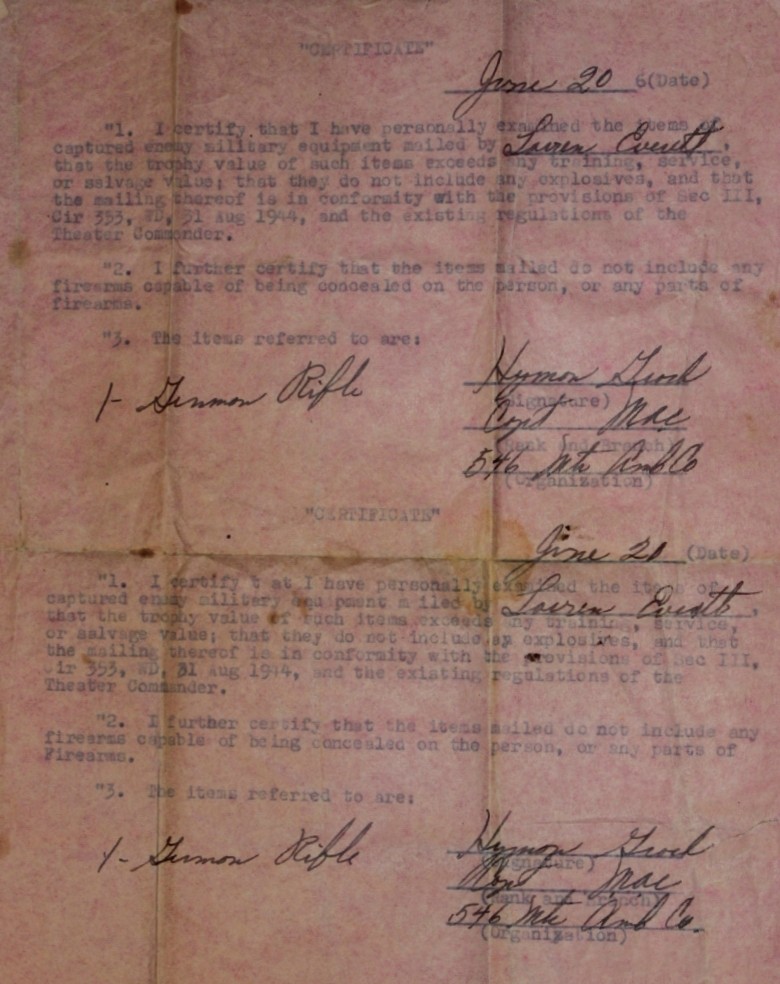 "CERTIFICATE"
June 20 6(Date)
"1. I certify that I have personally examined the items of
captured enemy military equipment mailed by Louren Everett,
that the trophy value of such items exceeds any training, service,
or salvage value; that they do not include any explosives, and that
the mailing thereof is in conformity with the provisions of Sec III,
Cir 353, WD, 31 Aug 1944, and the existing regulations of the
Theater Commander.
"2. I further certify that the items mailed do not include any
firearms capable of being concealed on the person, or any parts of
firearms.
"3. The items referred to are:
1- German Rifle
Hymon
(Signature)
Capt MAC
(Rank and Branch)
546 Mtr Amb Co
(Organization)
"CERTIFICATE"
June 20 (Date)
"1. I certify t at I have personally examined the items of
captured enemy military equipment mailed by Louren Everett,
that the trophy value of such items exceeds any training, service,
or salvage value; that they do not include explosives, and that
the mailing thereof is in conformity with the provisions of Sec III,
Cir 353, WD, 31 Aug 1944, and the existing regulations of the
Theater Commander.
"2. I further certify that the items mailed do not include any
firearms capable of being concealed on the person, or any parts of
Firearms.
"3. The items referred to are:
1- German Rifle
Hymon
(Signature)
MAC
(Rank and Branch)
546 Mtr Amb Co.
(Organization)